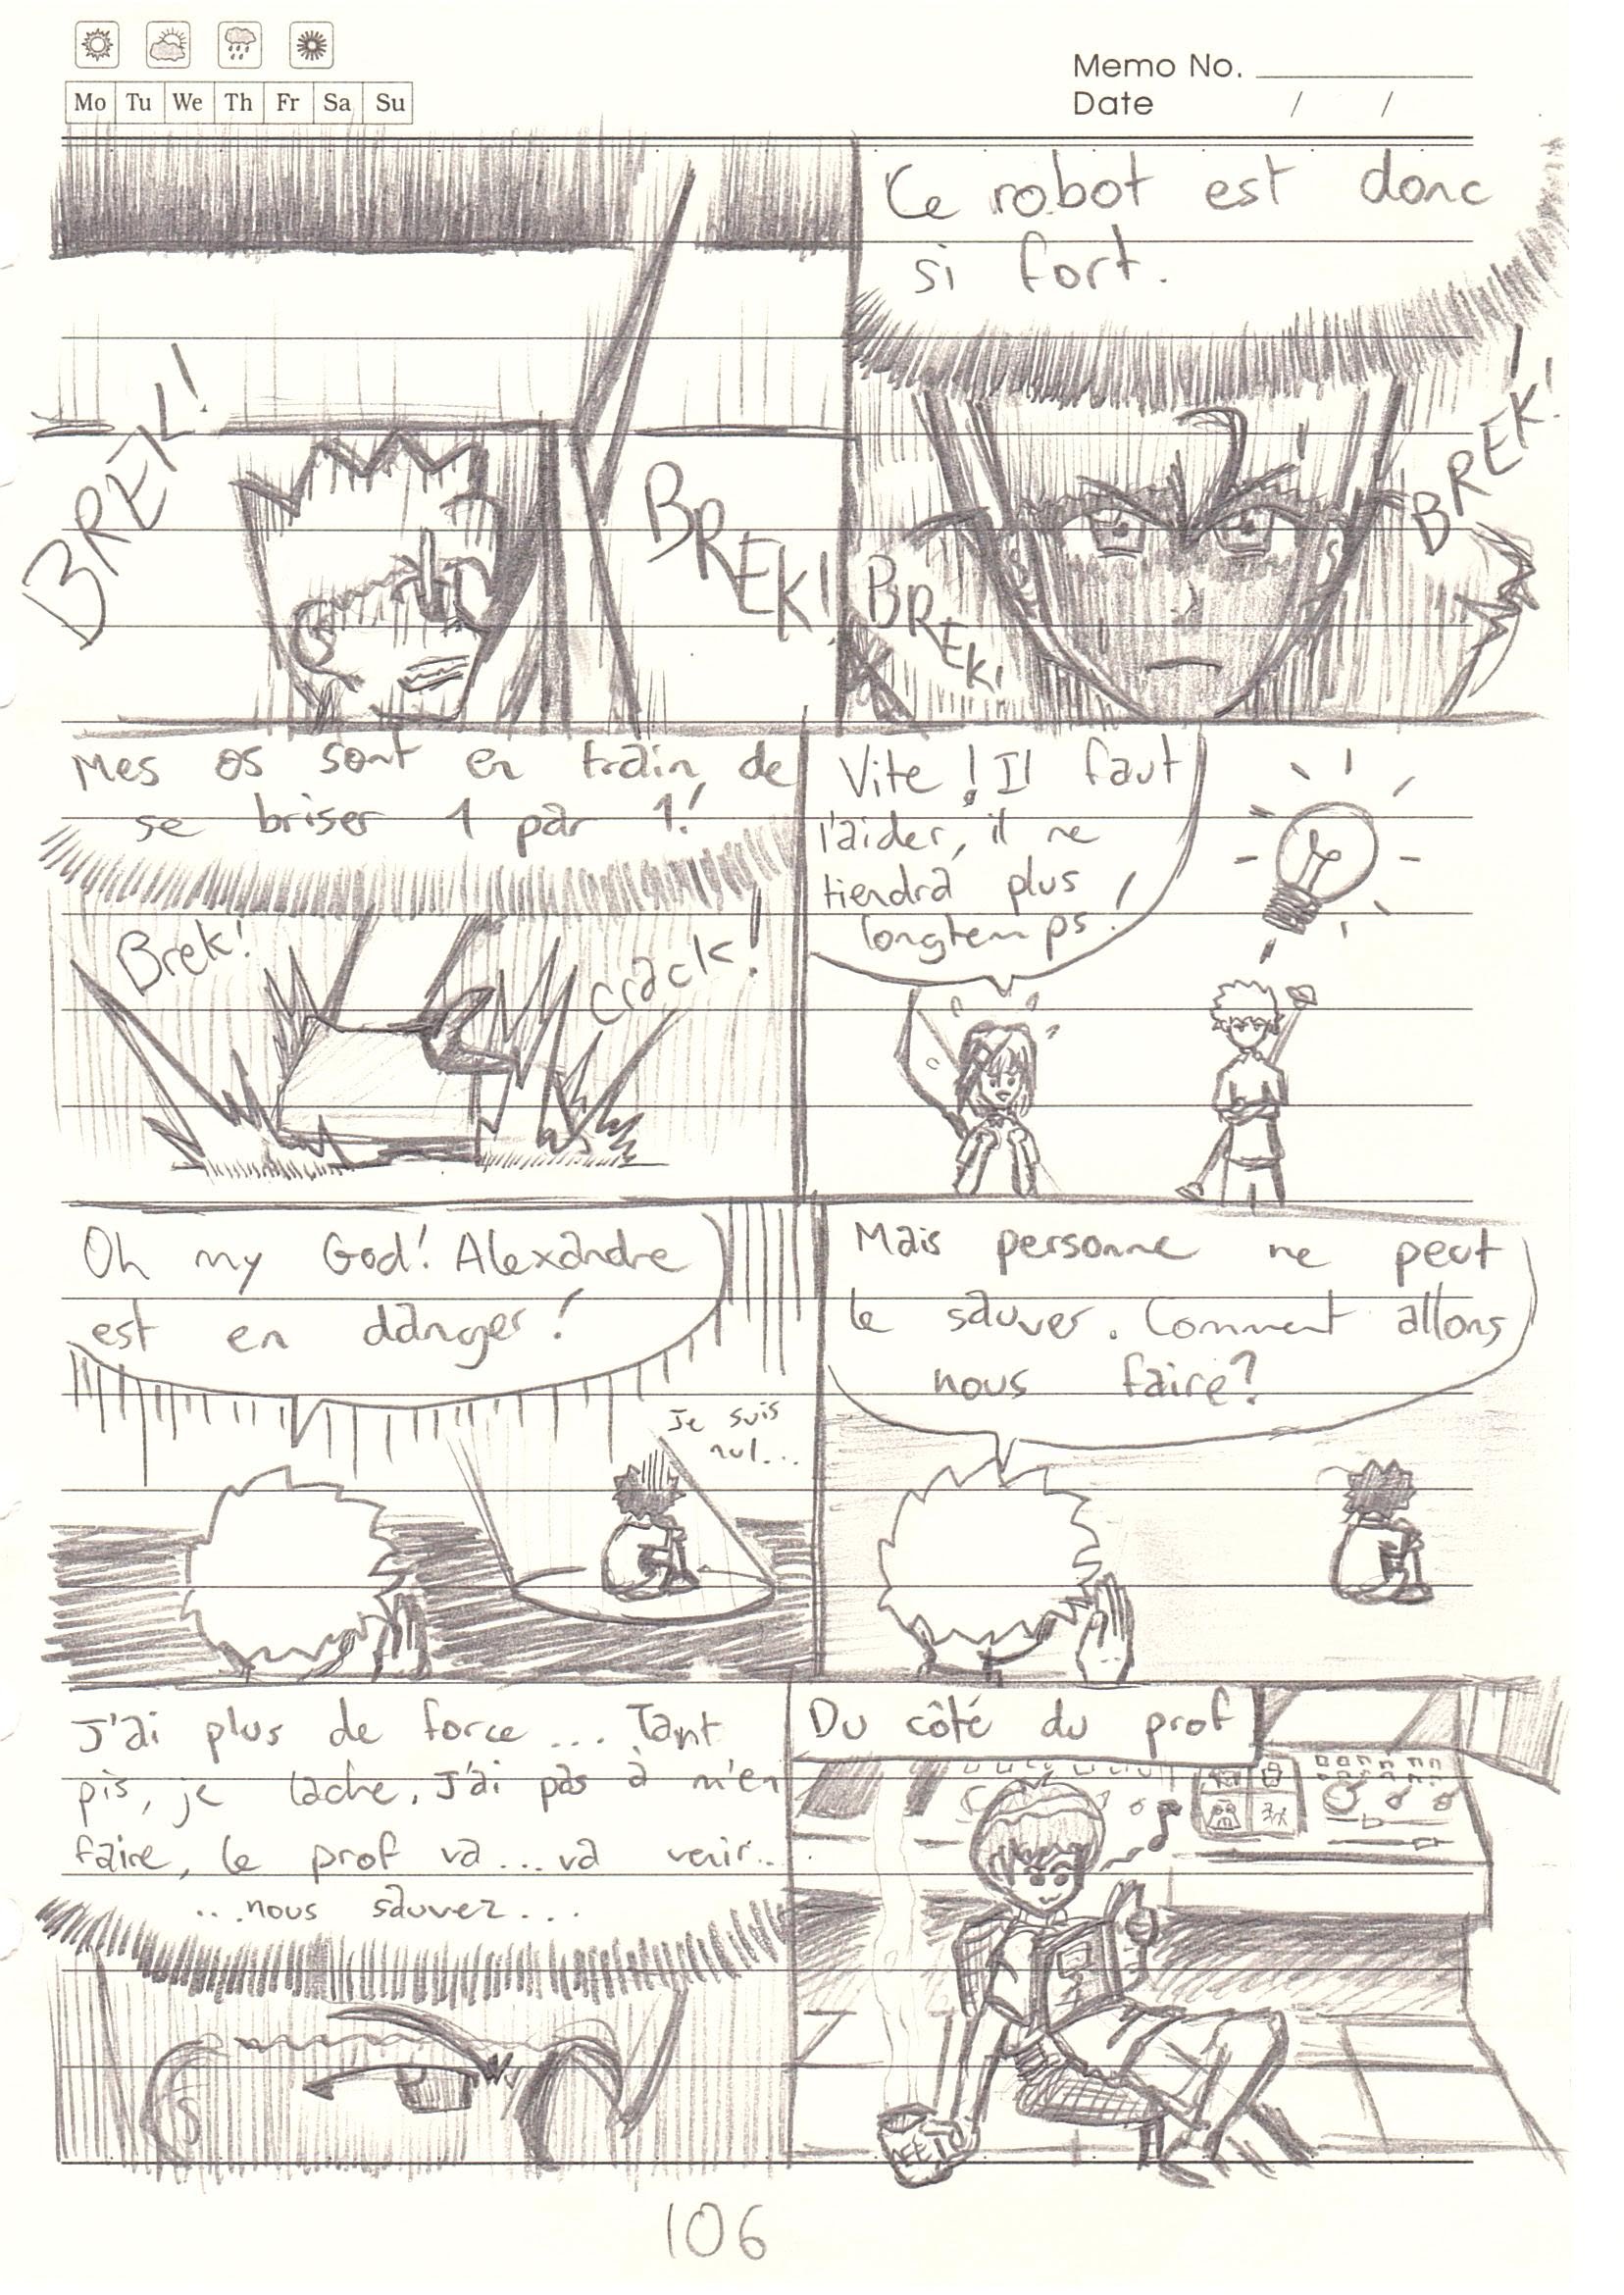 Memo No.
Mo Tu We Th Fr Sa Su
Date / /
BREK!
BREK!
Ce robot est donc
si fort.
BREK!
BREK!
Mes os sont en train de
se briser 1 par 1!
Brek!
crack!
Vite! Il faut
l'aider, il ne
tiendra plus
longtemps!
Oh my God! Alexandre
est en danger!
Je suis
nul...
Mais personne ne peut
le sauver. Comment allons
nous faire?
J'ai plus de force... Tant
pis, je lache. J'ai pas à m'en
faire, le prof va...va venir..
...nous sauvez...
Du côté du prof
106